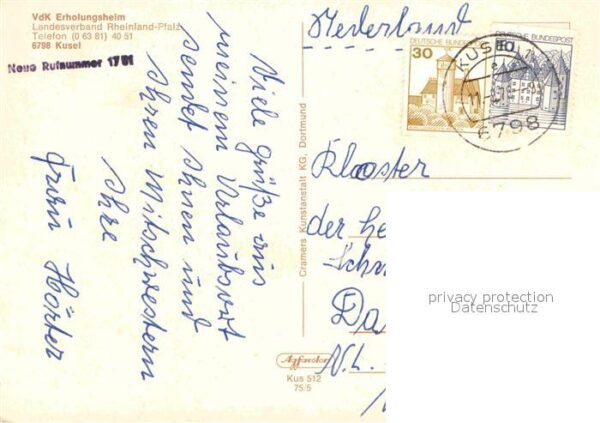 VdK Erholungsheim
Landesverband Rheinland-Pfalz
Telefon (0 63 81) 40 51
6798 Kusel
Neue Rufnummer 1701
Viele Grüße aus
meinem Urlaubsort
sendet Ihnen und
Ihren Mitschwestern
Ihre
Frau Hörter
Cramers Kunstanstalt KG, Dortmund
Agfacolor
Kus 512
75/5
Nederland
30
DEUTSCHE BUNDESPOST
10
DEUTSCHE BUNDESPOST
KUSEL
6798
Klooster
der he
Schw
Da
privacy protection
Datenschutz